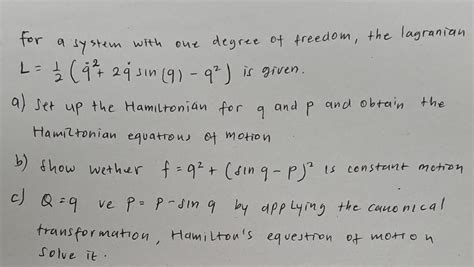 For a system with one degree of freedom, the lagranian
L = ½ (q̇² + 2q̇ sin (q) - q²) is given.
a) Set up the Hamiltonian for q and p and obtain the
Hamiltonian equations of motion
b) Show wether f = q² + (sin q - p)² is constant motion
c) Q = q ve P = p - sin q by applying the canonical
transformation, Hamilton's equestion of motion
solve it.